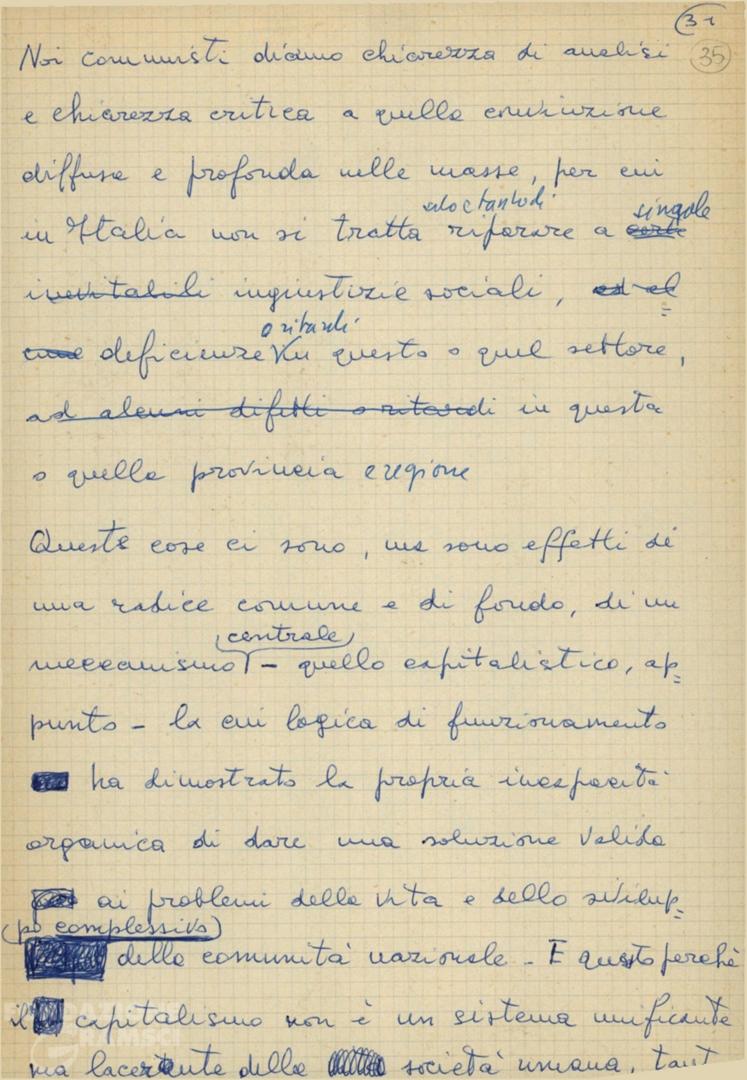 31
35
Noi comunisti diamo chiarezza di analisi
e chiarezza critica a quella convinzione
diffusa e profonda nelle masse, per cui
soltanto di singole
in Italia non si tratta riparare a certe
inevitabili ingiustizie sociali, ed al=
o ritardi
cune deficienze in questo o quel settore,
ad alcuni difetti o ritardi in questa
o quella provincia e regione
Queste cose ci sono, ma sono effetti di
una radice comune e di fondo, di un
centrale
meccanismo - quello capitalistico, ap=
punto - la cui logica di funzionamento
ha dimostrato la propria incapacità
organica di dare una soluzione valida
ai problemi della vita e dello svilup=
(po complessivo)
della comunità nazionale - E questo perchè
il capitalismo non è un sistema unificante
ma lacerante della società umana, tant